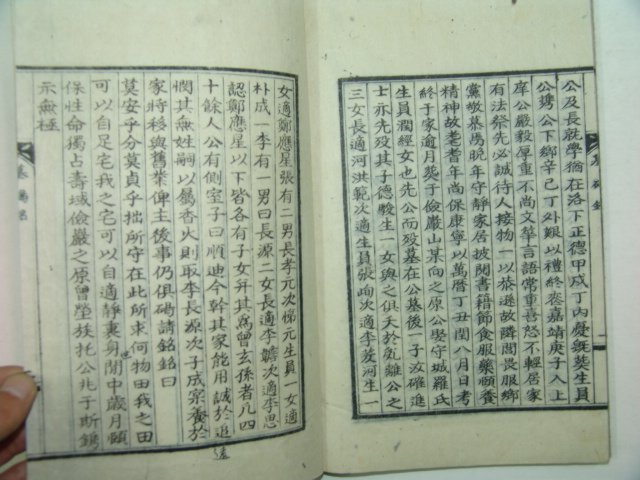 公及長就學猶在洛下正德甲戌丁內憂旣葬生員
公携公下鄉辛巳丁外艱以禮終喪嘉靖庚子入上
庠公嚴毅厚重不尚文華言語常重喜怒不輕居家
有法祭先必誠待人接物一以恭遜故隣閭畏服鄉
黨敬慕焉晩年守靜家居披閱書籍節食服藥頤養
精神故老耆年尚保康寧以萬曆丁丑閏八月日考
終于家逾月葬于儉嚴山向之原公學守城羅氏
生員潤經女也先公而歿墓在公墓後子汝確進
士亦先歿其子德駿生一女與之俱夭於乱離公之
三女長適河洪範次適生員張峋次適李菱河生一
女適鄭應星張有二男長孝元次悌元生員一女適
朴成一李有一男曰長源二女長適李次適李思
認鄭應星以下皆各有子女弁其爲曾玄孫者凡四
十餘人公有側室子曰順迪今幹其家能用誠於追遠
憫其無姓嗣以屬香火則取李長源次子成宗養於
家將移與舊業俾主後事仍俱碣請銘銘曰
莫安乎分莫貞乎拙所守在此所求何物田我之田
可以自足宅我之宅可以自適靜裏身世閒中歲月頤
保性命獨占壽域儉嚴之原曾塋族托公兆于斯鐫
示無極